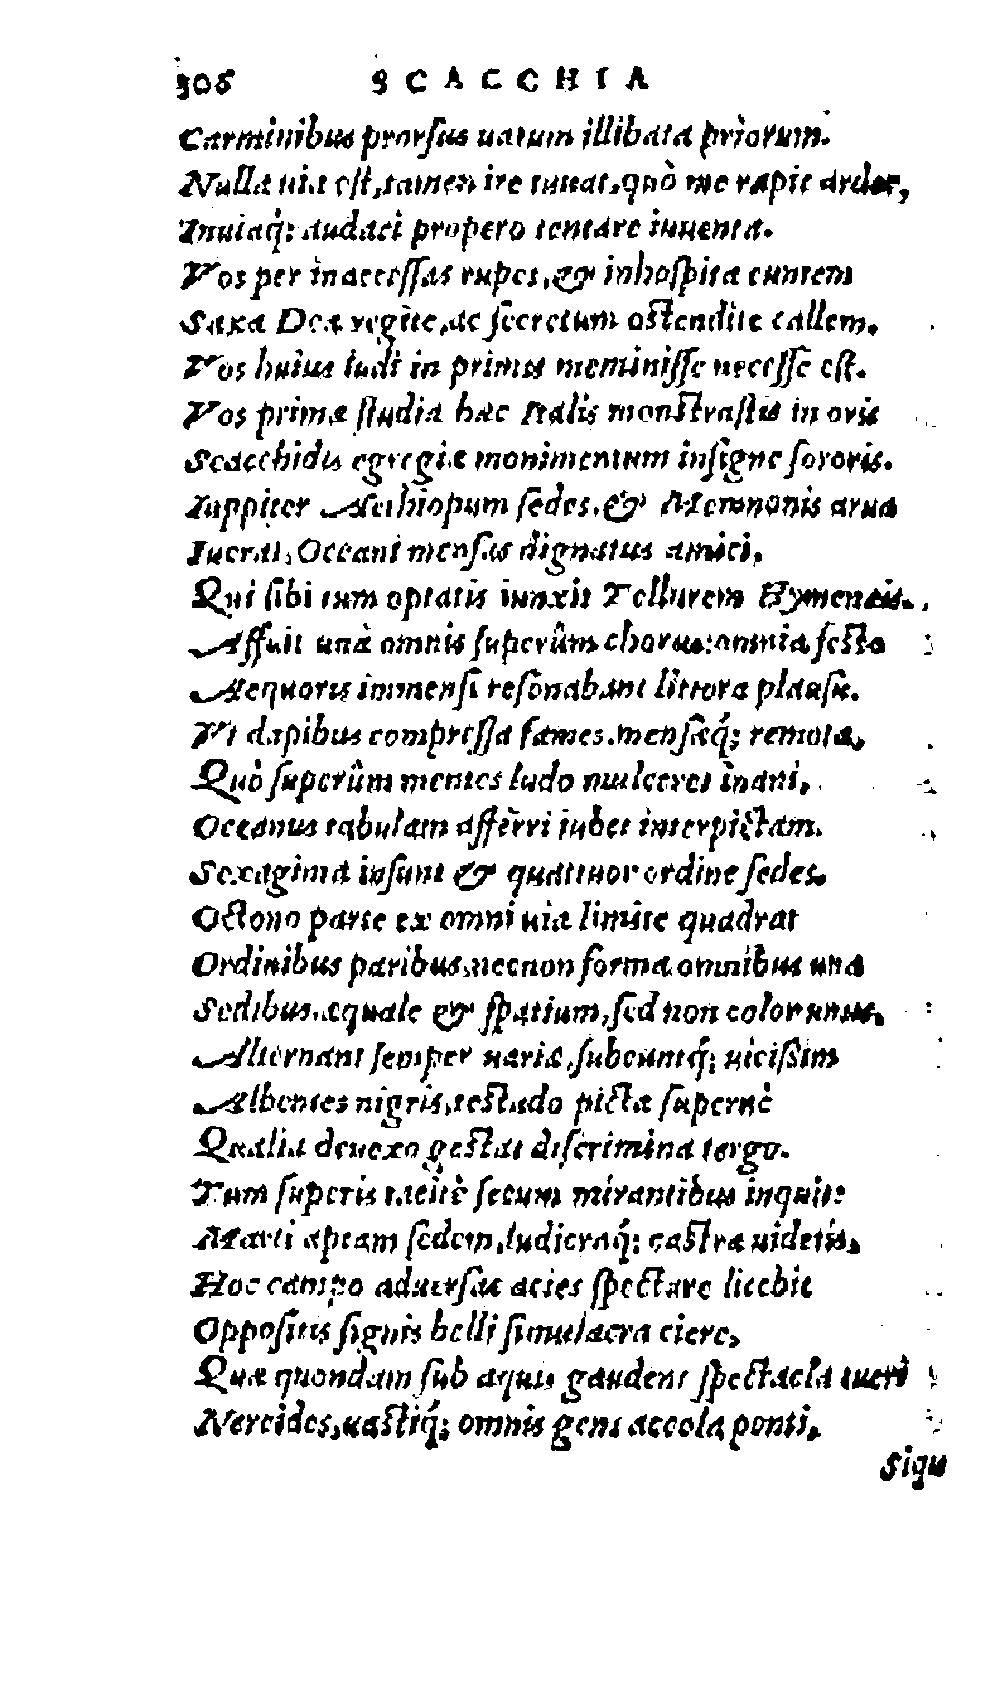 306 SCACCHIA
Carminibus prorsus uatum illibata priorum.
Nulla uia est, tamen ire iuuat, quò me rapit ardor,
Inuiaq́; audaci propero tentare iuuenta.
Vos per inaccessas rupes, & inhospita euntem
Saxa Deæ regite, ac secretum ostendite callem.
Vos huius ludi in primis meminisse necesse est.
Vos primæ studia hæc Italis monstrastis in oris
Scacchidis egregiæ monimentum insigne sororis.
Iuppiter Aethiopum sedes, & Memnonis arua
Iuerat, Oceani mensas dignatus amici,
Qui sibi tum optatis iunxit Tellurem Hymeneis.
Affuit unà omnis superûm chorus: omnia festo
Aequoris immensi resonabant littora plausu.
Vt dapibus compressa fames, mensæq́; remotæ,
Quò superûm mentes ludo mulceret inani,
Oceanus tabulam afferri iubet interpictam.
Sexaginta insunt & quattuor ordine sedes.
Octono parte ex omni uia limite quadrat
Ordinibus paribus, necnon forma omnibus una
Sedibus, æquale & spatium, sed non color unus.
Alternant semper uariæ, subeuntq́; uicissim
Albentes nigris, testudo picta supernè
Qualia deuexo gestat discrimina tergo.
Tum superis tacitè secum mirantibus inquit:
Marti aptam sedem, ludicraq́; castra uidetis.
Hoc campo aduersas acies spectare licebit
Oppositis signis belli simulacra ciere,
Quæ quondam sub aquis gaudent spectacla tueri
Nereides, uastiq́; omnis gens accola ponti,
Siqu